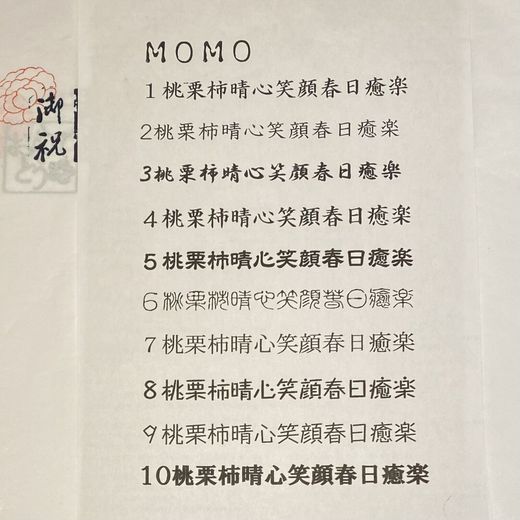 MOMO
1桃栗柿晴心笑顔春日癒楽
2桃栗柿晴心笑顔春日癒楽
3桃栗柿晴心笑顔春日癒楽
4桃栗柿晴心笑顔春日癒楽
5桃栗柿晴心笑顔春日癒楽
6桃栗柿晴心笑顔春日癒楽
7桃栗柿晴心笑顔春日癒楽
8桃栗柿晴心笑顔春日癒楽
9桃栗柿晴心笑顔春日癒楽
10桃栗柿晴心笑顔春日癒楽
御祝